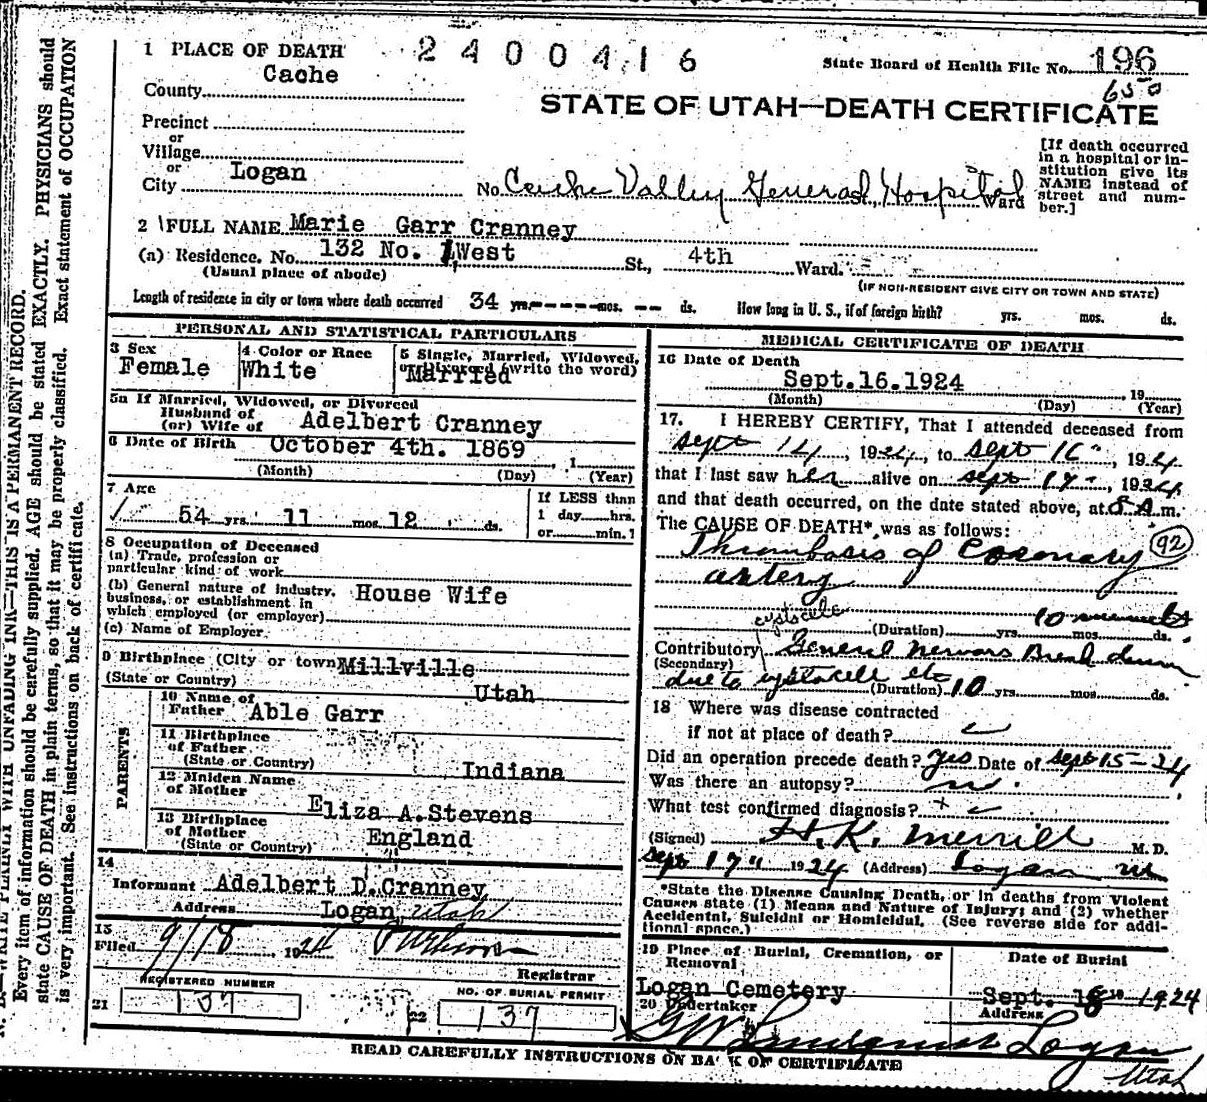 N. B.—WRITE PLAINLY WITH UNFADING INK—THIS IS A PERMANENT RECORD.
Every item of information should be carefully supplied. AGE should be stated EXACTLY. PHYSICIANS should
state CAUSE OF DEATH in plain terms, so that it may be properly classified. Exact statement of OCCUPATION
is very important. See instructions on back of certificate.
1 PLACE OF DEATH
2400416
State Board of Health File No. 196
650
County Cache
STATE OF UTAH—DEATH CERTIFICATE
Precinct
or
Village
or
City Logan
No. Cache Valley General Hospital St., Ward
[If death occurred
in a hospital or in-
stitution give its
NAME instead of
street and num-
ber.]
2 FULL NAME Marie Garr Cranney
(a) Residence. No. 132 No. 1 West St., 4th Ward.
(Usual place of abode)
(IF NON-RESIDENT GIVE CITY OR TOWN AND STATE)
Length of residence in city or town where death occurred 34 yrs. mos. ds. How long in U. S., if of foreign birth? yrs. mos. ds.
PERSONAL AND STATISTICAL PARTICULARS
3 Sex
Female
4 Color or Race
White
5 Single, Married, Widowed,
or Divorced (write the word)
Married
5a If Married, Widowed, or Divorced
Husband of
(or) Wife of Adelbert Cranney
6 Date of Birth October 4th. 1869, 1
(Month) (Day) (Year)
7 Age
54 yrs. 11 mos. 12 ds.
If LESS than
1 day hrs.
or min.?
8 Occupation of Deceased
(a) Trade, profession or
particular kind of work
(b) General nature of industry,
business, or establishment in
which employed (or employer) House Wife
(c) Name of Employer
9 Birthplace (City or town) Millville
(State or Country) Utah
PARENTS
10 Name of
Father Able Garr
11 Birthplace
of Father
(State or Country) Indiana
12 Maiden Name
of Mother
Eliza A.Stevens
13 Birthplace
of Mother
(State or Country) England
14
Informant Adelbert D.Cranney
Address Logan, Utah
15
Filed 9/18 1924
Registrar
REGISTERED NUMBER
21 137
NO. OF BURIAL PERMIT
22 137
MEDICAL CERTIFICATE OF DEATH
16 Date of Death
Sept.16.1924, 19
(Month) (Day) (Year)
17. I HEREBY CERTIFY, That I attended deceased from
sept 14, 1924, to sept 16, 1924
that I last saw her alive on sept, 1924
and that death occurred, on the date stated above, at 8 A.m.
The CAUSE OF DEATH* was as follows:
Thrombosis of Coronary 92
artery
10 minutes
cystocele
(Duration) yrs. mos. ds.
Contributory General Nervous Break down
(Secondary)
due to cystocele etc
(Duration) 10 yrs. mos. ds.
18 Where was disease contracted
if not at place of death?
Did an operation precede death? yes Date of sept 15-24
Was there an autopsy? no
What test confirmed diagnosis?
(Signed) H.K. Merrill M. D.
sept 17" 1924 (Address) Logan Ut
*State the Disease Causing Death, or in deaths from Violent
Causes state (1) Means and Nature of Injury; and (2) whether
Accidental, Suicidal or Homicidal. (See reverse side for addi-
tional space.)
19 Place of Burial, Cremation, or
Removal
Logan Cemetery
Date of Burial
Sept. 18 1924
20 Undertaker
G W Lindquist
Address
Logan
Utah
READ CAREFULLY INSTRUCTIONS ON BACK OF CERTIFICATE